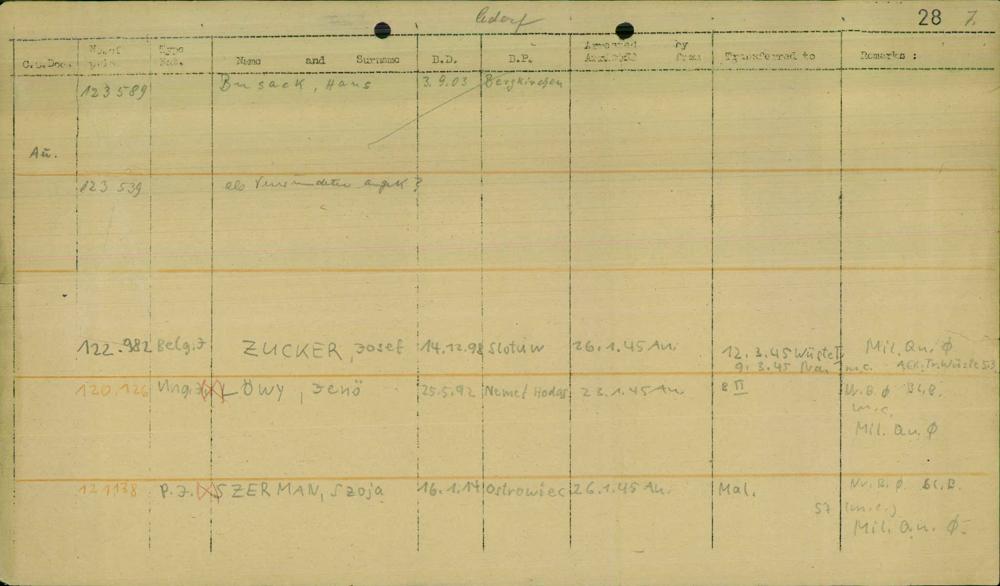 28 7.
C.C.Doc. No.of Type Nat. Name and Surname B.D. B.P. Arrested by from Transferred to Remarks :
123 589 Busack, Hans 3.9.03 Bergkirchen
Au.
123 539 als
122.982 Belg.J ZUCKER, Josef 14.12.98 Slotuw 26.1.45 Au. 12.3.45 Wüste Mil. Qu. Ø
9.3.45 m.c. Tr. Wüste 53
120.126 Ung.J. LÖWY, Jenö 25.5.92 Nemet 23.1.45 Au. 8 II Nr. B. Ø Bl. B.
m.c.
Mil. Qu. Ø
121138 P.J. SZERMAN, Szoja 16.1.14 Ostrowiec 26.1.45 Au. Mal. Nr. B. Ø. Bl. B.
57 (m.c.)
Mil. Qu. Ø.